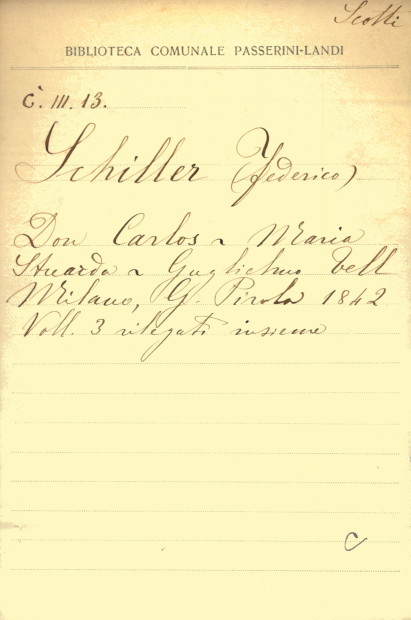 Scotti
BIBLIOTECA COMUNALE PASSERINI-LANDI
C. III. 13.
Schiller (Federico)
Don Carlos ~ Maria
Stuarda ~ Guglielmo Tell
Milano, G. Pirola 1842
Voll. 3 rilegati insieme
C